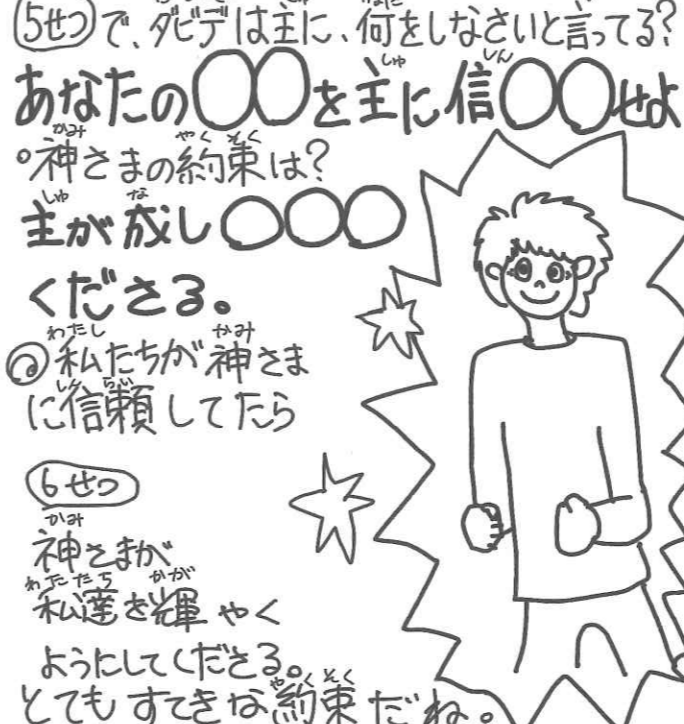 5せつで、ダビデは主に、何をしなさいと言ってる?
あなたの〇〇を主に信〇〇せよ
。神さまの約束は?
主が成し〇〇〇
くださる。
私たちが神さま
に信頼してたら
6せつ
神さまが
私達を輝やく
ようにしてくださる。
とてもすてきな約束だね。